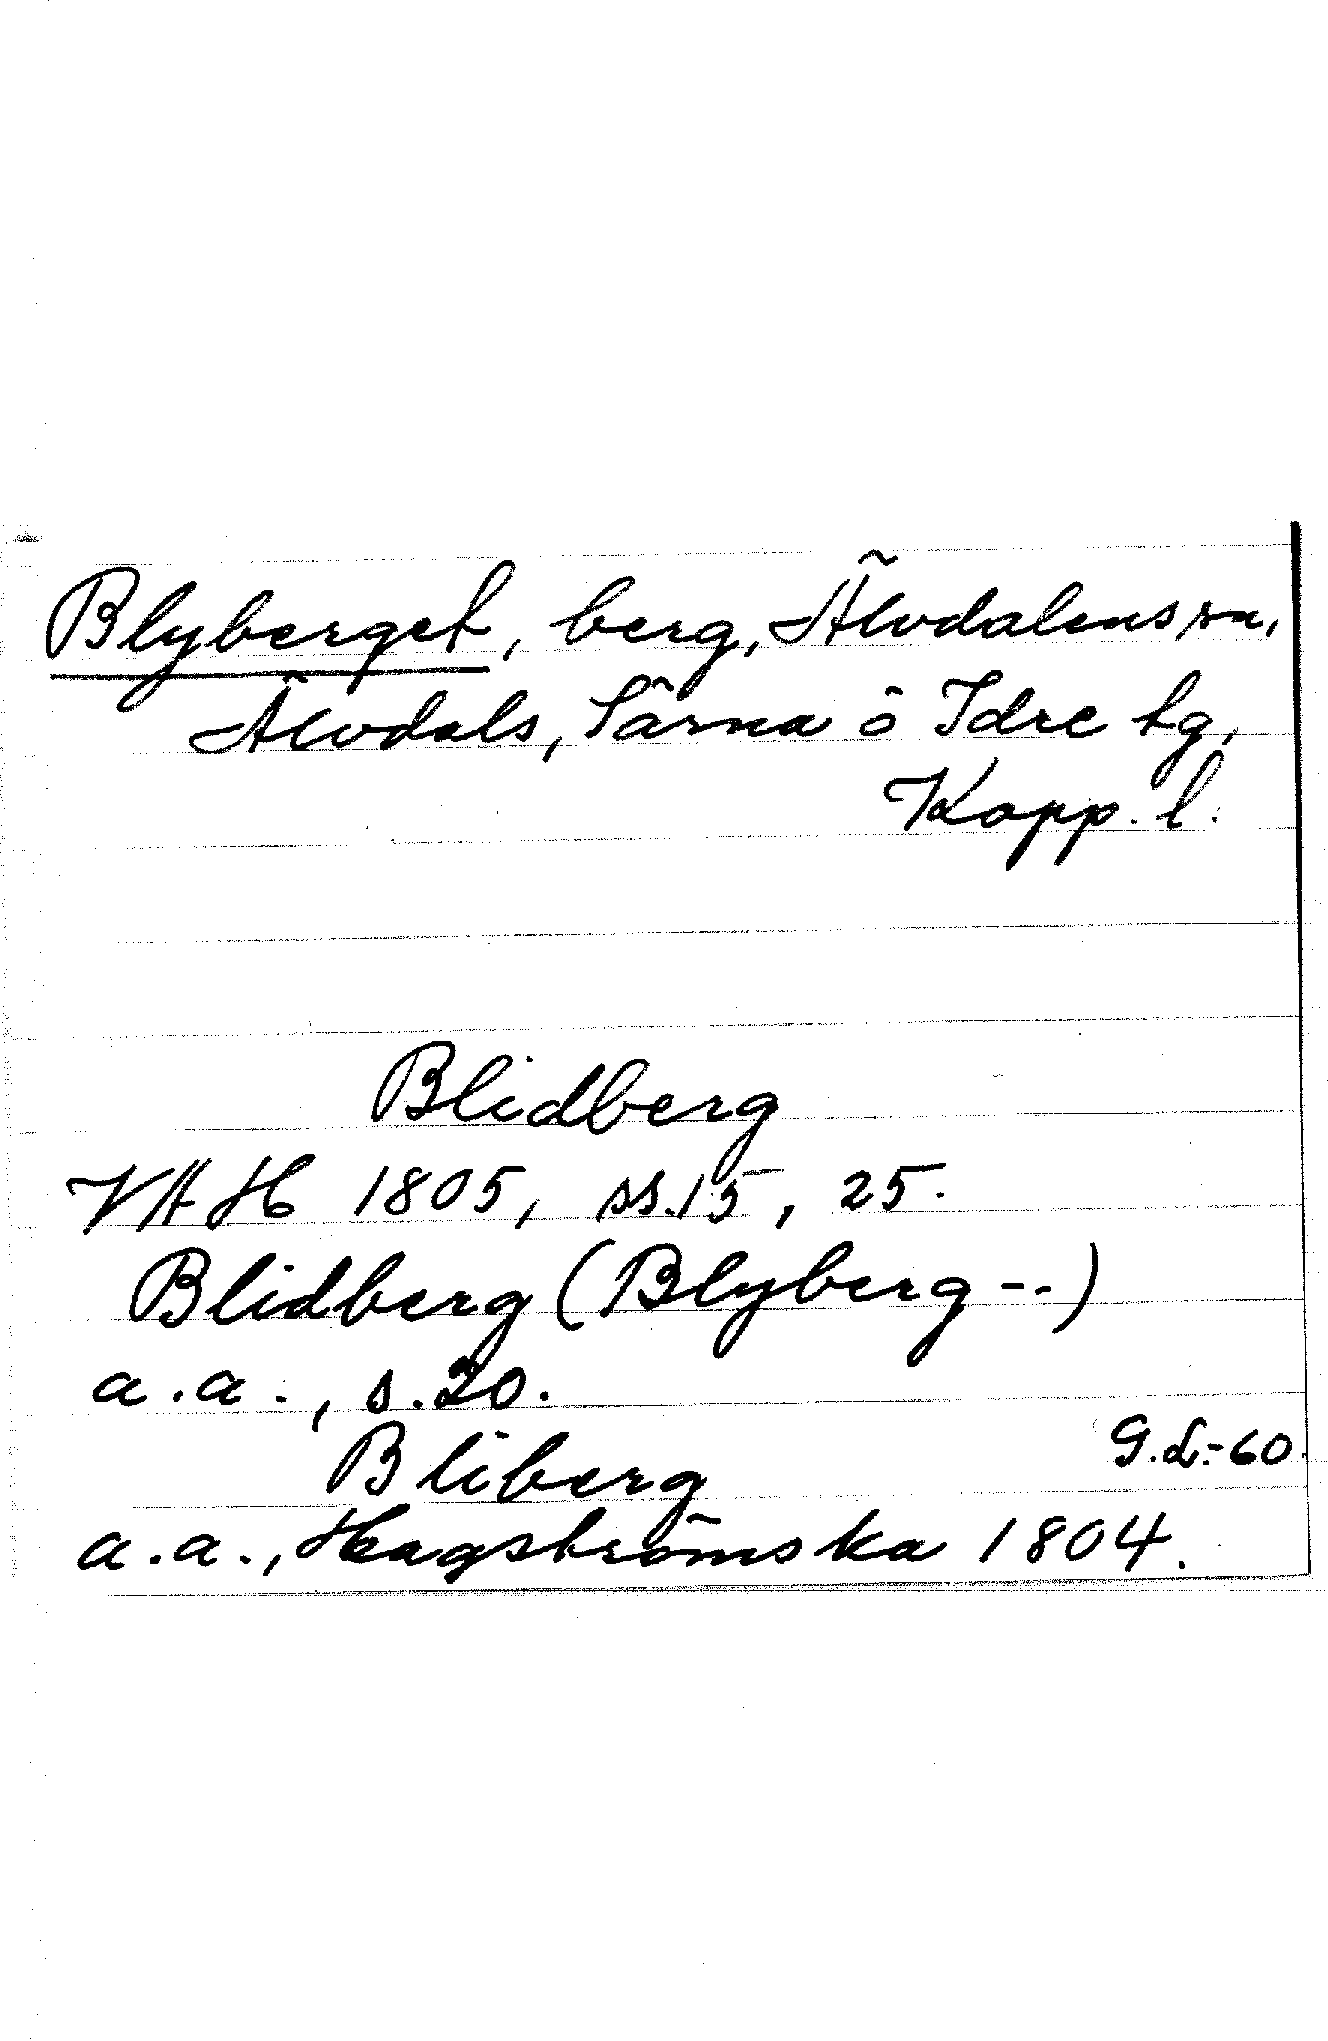 Blyberget, berg, Älvdalens sn,
Älvdals, Särna o Idre tg,
Kopp. l.
Blidberg
VAH 1805, ss. 15, 25.
Blidberg (Blyberg --)
a.a., s. 20.
Bliberg
G.L.-60.
a.a., Hagströmska 1804.